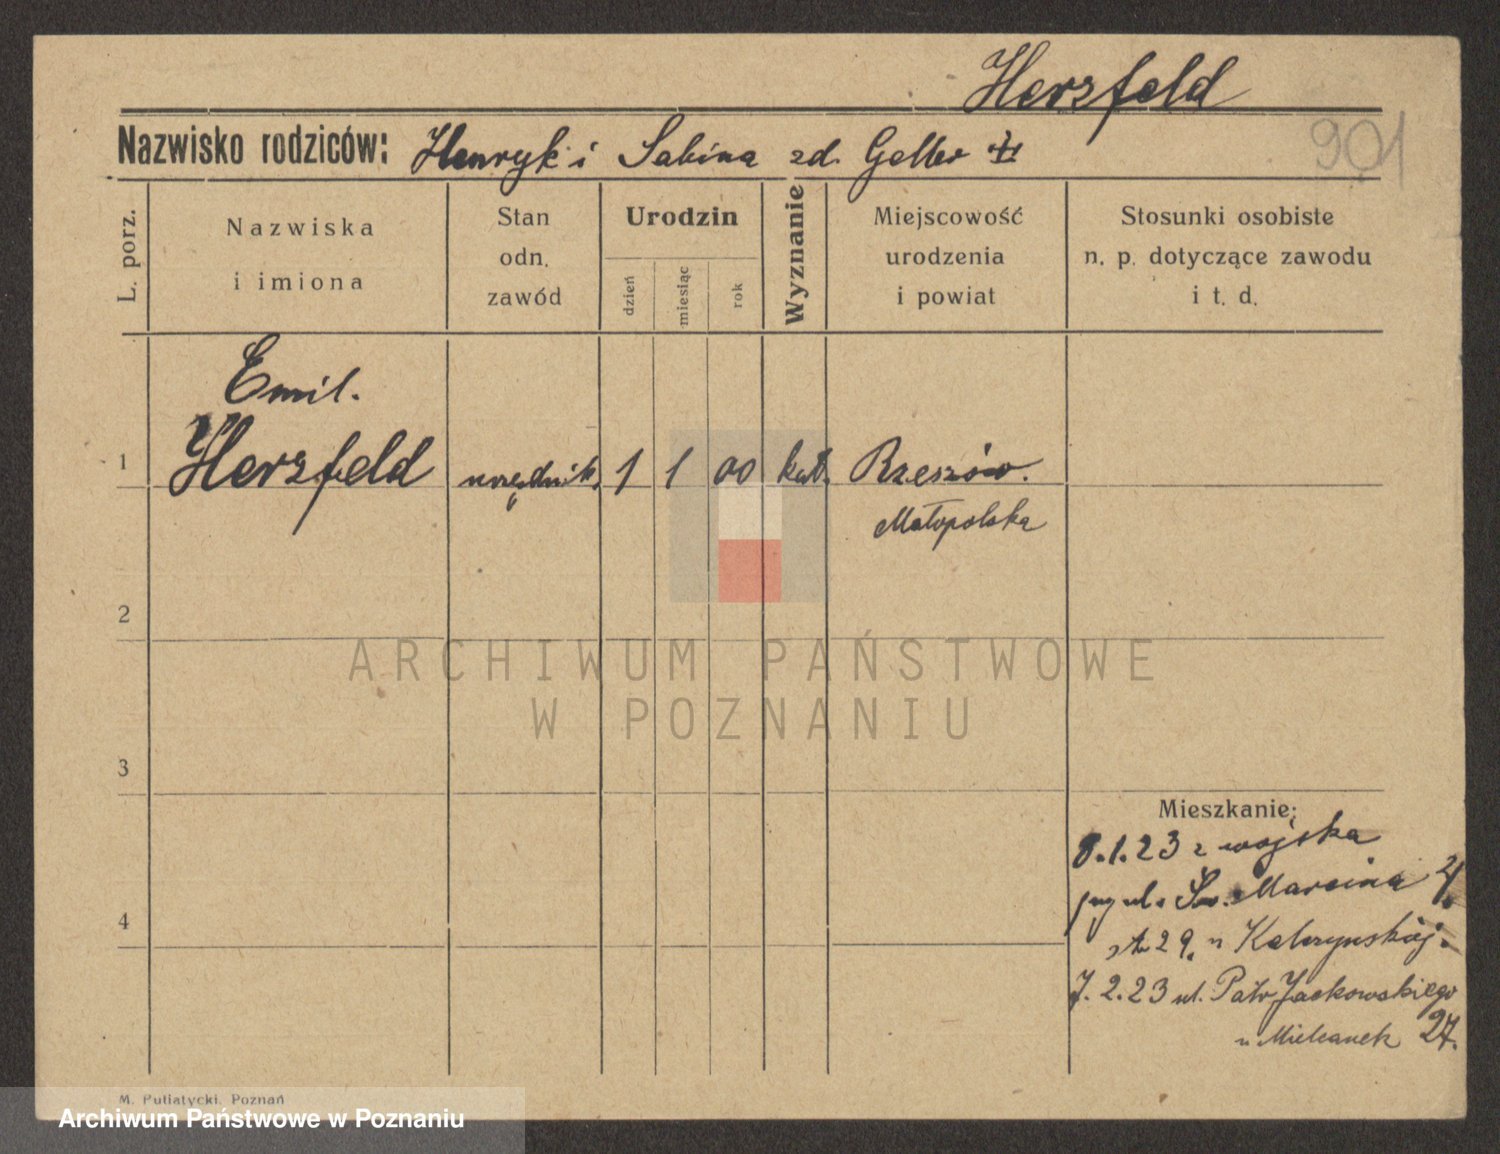 Herzfeld
Nazwisko rodziców: Henryk i Sabina zd. Geller
901
L. porz.
Nazwiska
i imiona
Stan
odn.
zawód
Urodzin
dzień
miesiąc
rok
Wyznanie
Miejscowość
urodzenia
i powiat
Stosunki osobiste
n. p. dotyczące zawodu
i t. d.
Emil.
1 Herzfeld urzędnik. 1 1 00 kat. Rzeszów.
Małopolska
2
ARCHIWUM PAŃSTWOWE
W POZNANIU
3
Mieszkanie:
8.1.23 z wojska
ul. Św. Marcina
29. u
7.2.23 ul. Patr. Jackowskiego
u Mielcarek 27.
4
M. Putiatycki, Poznań
Archiwum Państwowe w Poznaniu